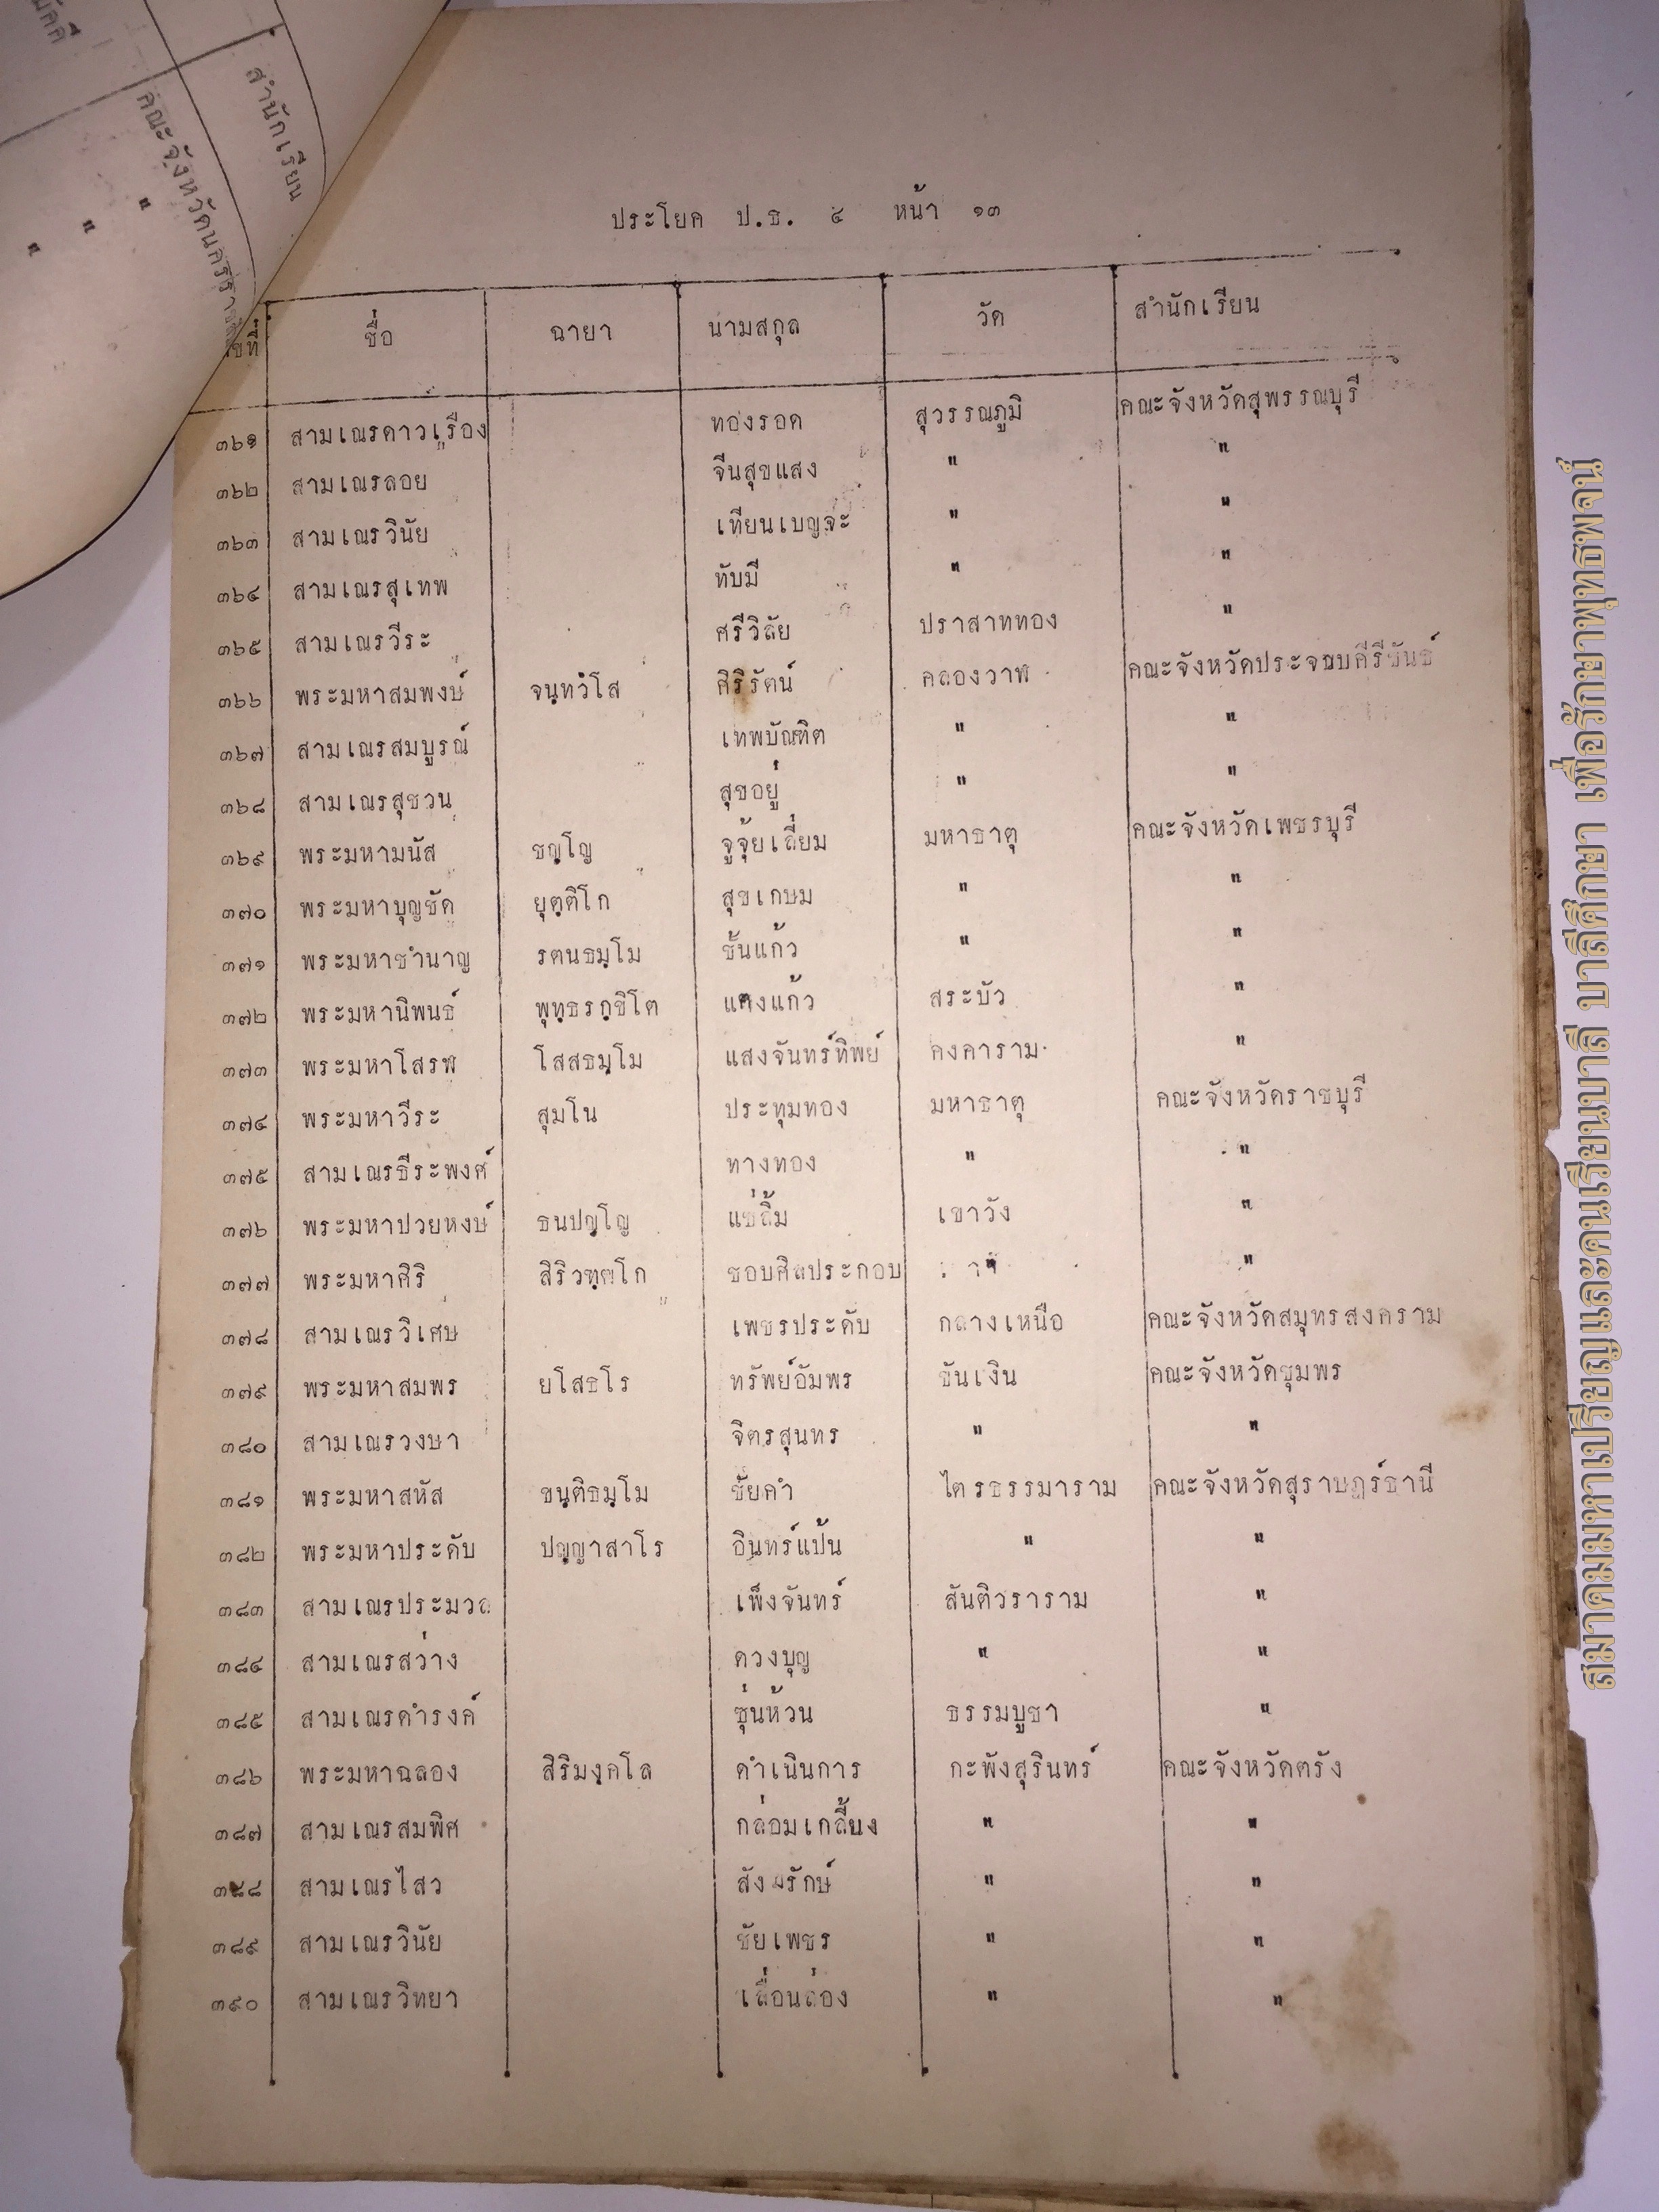 สำนักเรียน
คณะจังหวัดนคร
" " "
ประโยค ป.ธ. ๔ หน้า ๑๓
ขที่ ชื่อ ฉายา นามสกุล วัด สำนักเรียน
๓๖๑ สามเณรดาวเรือง ทองรอด สุวรรณภูมิ คณะจังหวัดสุพรรณบุรี
๓๖๒ สามเณรลอย จีนสุขแสง " "
๓๖๓ สามเณรวินัย เทียนเบญจะ " "
๓๖๔ สามเณรสุเทพ ทับมี " "
๓๖๕ สามเณรวีระ ศรีวิลัย ปราสาททอง "
๓๖๖ พระมหาสมพงษ์ จนฺทวํโส ศิริรัตน์ คลองวาฬ คณะจังหวัดประจวบคีรีขันธ์
๓๖๗ สามเณรสมบูรณ์ เทพบัณฑิต " "
๓๖๘ สามเณรสุชวน สุขอยู่ " "
๓๖๙ พระมหามนัส ธญฺโญ จูจุ้ยเลี่ยม มหาธาตุ คณะจังหวัดเพชรบุรี
๓๗๐ พระมหาบุญชัด ยุตฺติโก สุขเกษม " "
๓๗๑ พระมหาชำนาญ รตนธมฺโม ชั้นแก้ว " "
๓๗๒ พระมหานิพนธ์ พุทฺธรกฺขิโต แตงแก้ว สระบัว "
๓๗๓ พระมหาโสรฬ โสสธมฺโม แสงจันทร์ทิพย์ คงคาราม "
๓๗๔ พระมหาวีระ สุมโน ประทุมทอง มหาธาตุ คณะจังหวัดราชบุรี
๓๗๕ สามเณรธีระพงศ์ ทางทอง " "
๓๗๖ พระมหาปวยหงษ์ ธนปญฺโญ แซ่ลิ้ม เขาวัง "
๓๗๗ พระมหาศิริ สิริวฑฺฒโก ชอบศิลประกอบ "
๓๗๘ สามเณรวิเศษ เพชรประดับ กลางเหนือ คณะจังหวัดสมุทรสงคราม
๓๗๙ พระมหาสมพร ยโสธโร ทรัพย์อัมพร ขันเงิน คณะจังหวัดชุมพร
๓๘๐ สามเณรวงษา จิตรสุนทร " "
๓๘๑ พระมหาสหัส ขนฺติธมฺโม ชัยคำ ไตรธรรมาราม คณะจังหวัดสุราษฎร์ธานี
๓๘๒ พระมหาประดับ ปญฺญาสาโร อินทร์แป้น " "
๓๘๓ สามเณรประมวล เพ็งจันทร์ สันติวราราม "
๓๘๔ สามเณรสว่าง ดวงบุญ " "
๓๘๕ สามเณรดำรงค์ ซุ่นห้วน ธรรมบูชา "
๓๘๖ พระมหาฉลอง สิริมงฺคโล ดำเนินการ กะพังสุรินทร์ คณะจังหวัดตรัง
๓๘๗ สามเณรสมพิศ กล่อมเกลี้ยง " "
๓๘๘ สามเณรไสว สังฆรักษ์ " "
๓๘๙ สามเณรวินัย ชัยเพชร " "
๓๙๐ สามเณรวิทยา เลื่อนล่อง " "
สมาคมมหาเปรียญและคนเรียนบาลี บาลีศึกษา เพื่อรักษาพุทธพจน์